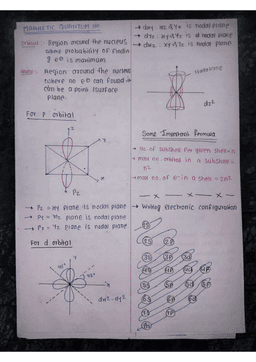 MAGNETIC QUANTUM no
Orbital Region around the nucleus
where probability of findin
g e⊖ is maximum
Node : Region around the nucleus
where no e⊖ can found it
can be a point /surface
plane.
For p orbital
z
y
x
Pz
→ Pz = xy plane is nodal plane
→ Py = xz plane is nodal plane
→ Px = yz plane is nodal plane
For d orbital
y
45°
45°
x
dx²-y²
→ dxy xz & yz is nodal plane
nodal cone
dz²
Some Important Formula
→ no. of subshell for given shell = n
→ max no. orbital in a subshell =
n²
→ max no. of e⁻ in a shell = 2n²
— x — x — x —
→ Writing electronic configuration
1s
2s 2p
3s 3p 3d
4s 4p 4d 4f
5s 5p 5d 5f
6s 6p 6d
7s 7p
8s